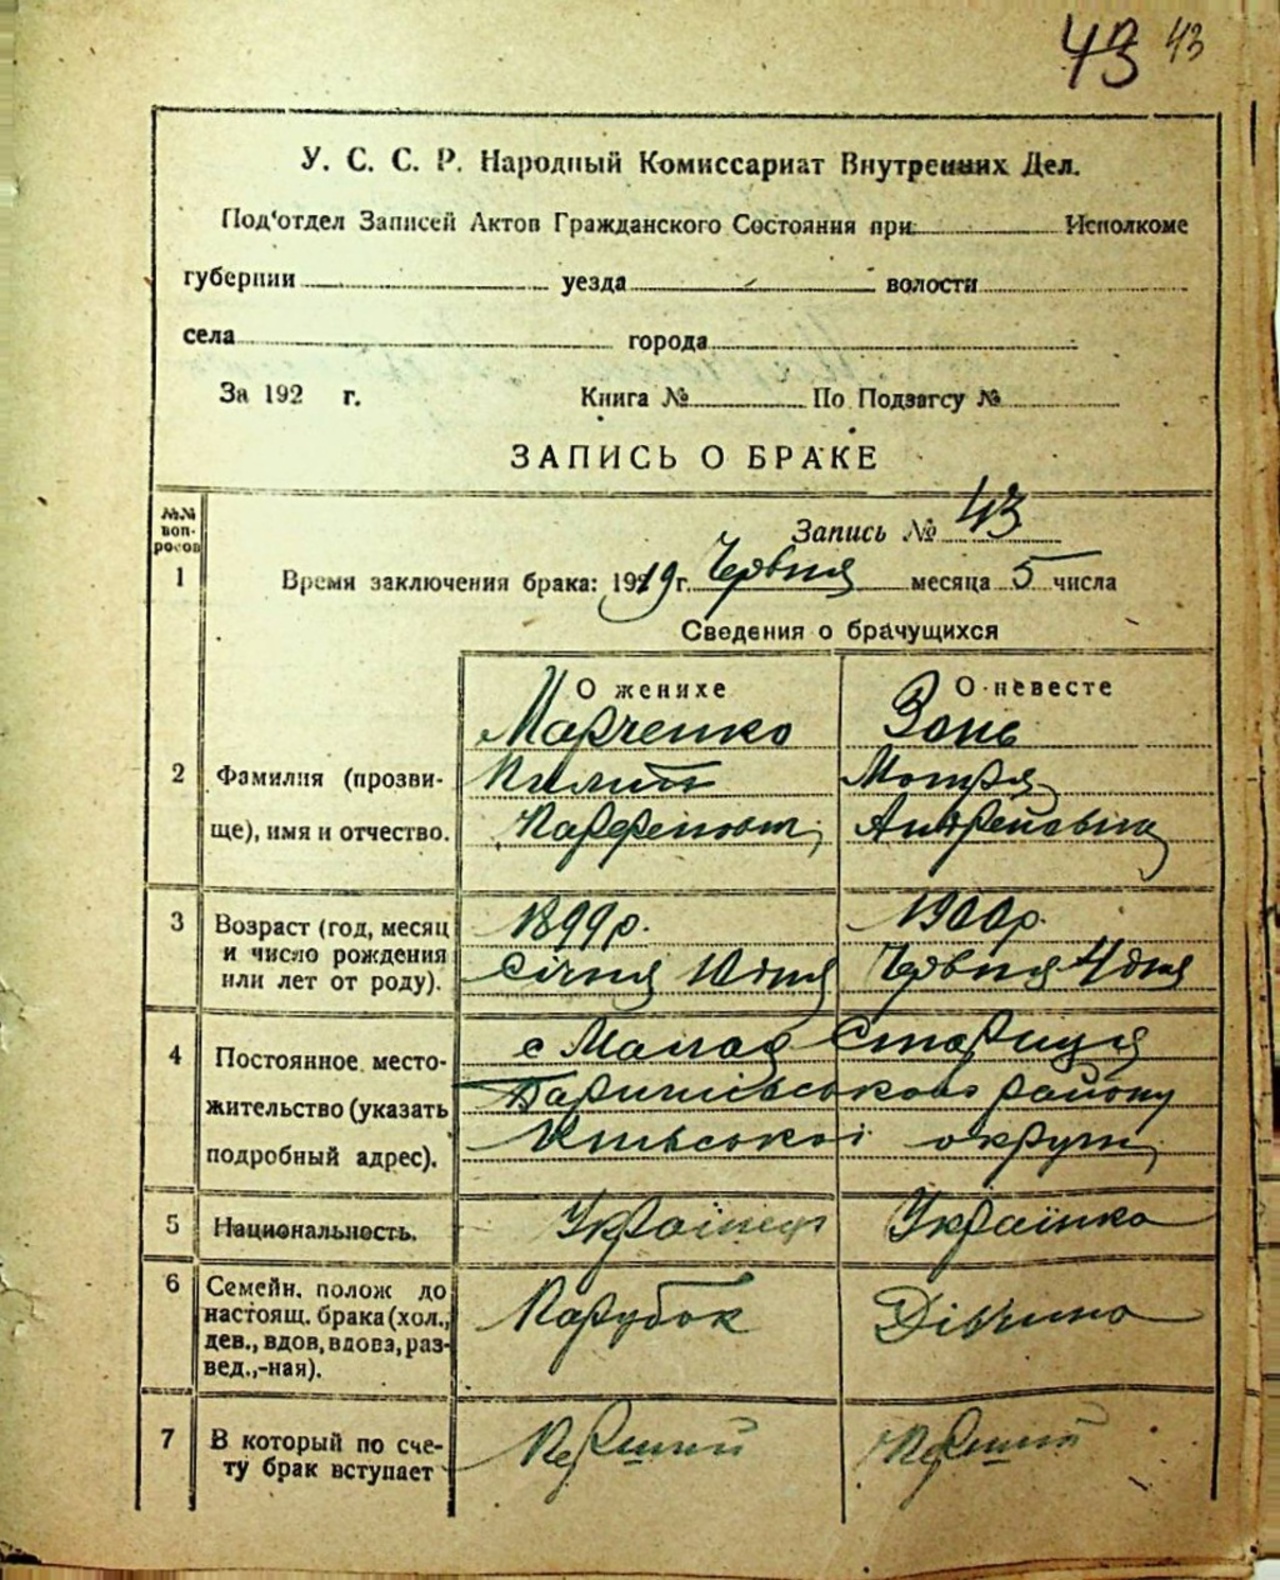 43 43
У. С. С. Р. Народный Комиссариат Внутренних Дел.
Под'отдел Записей Актов Гражданского Состояния при Исполкоме
губернии уезда волости
села города
За 192 г. Книга № По Подзагсу №
ЗАПИСЬ О БРАКЕ
№№ воп-росов
Запись № 43
1 Время заключения брака: 1919 г. Червня месяца 5 числа
Сведения о брачущихся
О женихе О невесте
Марченко Зань
2 Фамилия (прозви- Пилип Мотря
ще), имя и отчество. Парфенович Андреевна
3 Возраст (год, месяц 1899 р. 1900 р.
и число рождения Січня 10 дня Червня 4 дня
или лет от роду).
4 Постоянное место- с Малая Стариця
жительство (указать Баришівського району
подробный адрес). Київської округи
5 Национальность. Українець Українка
6 Семейн. полож до
настоящ. брака (хол., Парубок Дівчина
дев., вдов, вдова, раз-
вед.,-ная).
7 В который по сче- Перший Перший
ту брак вступает